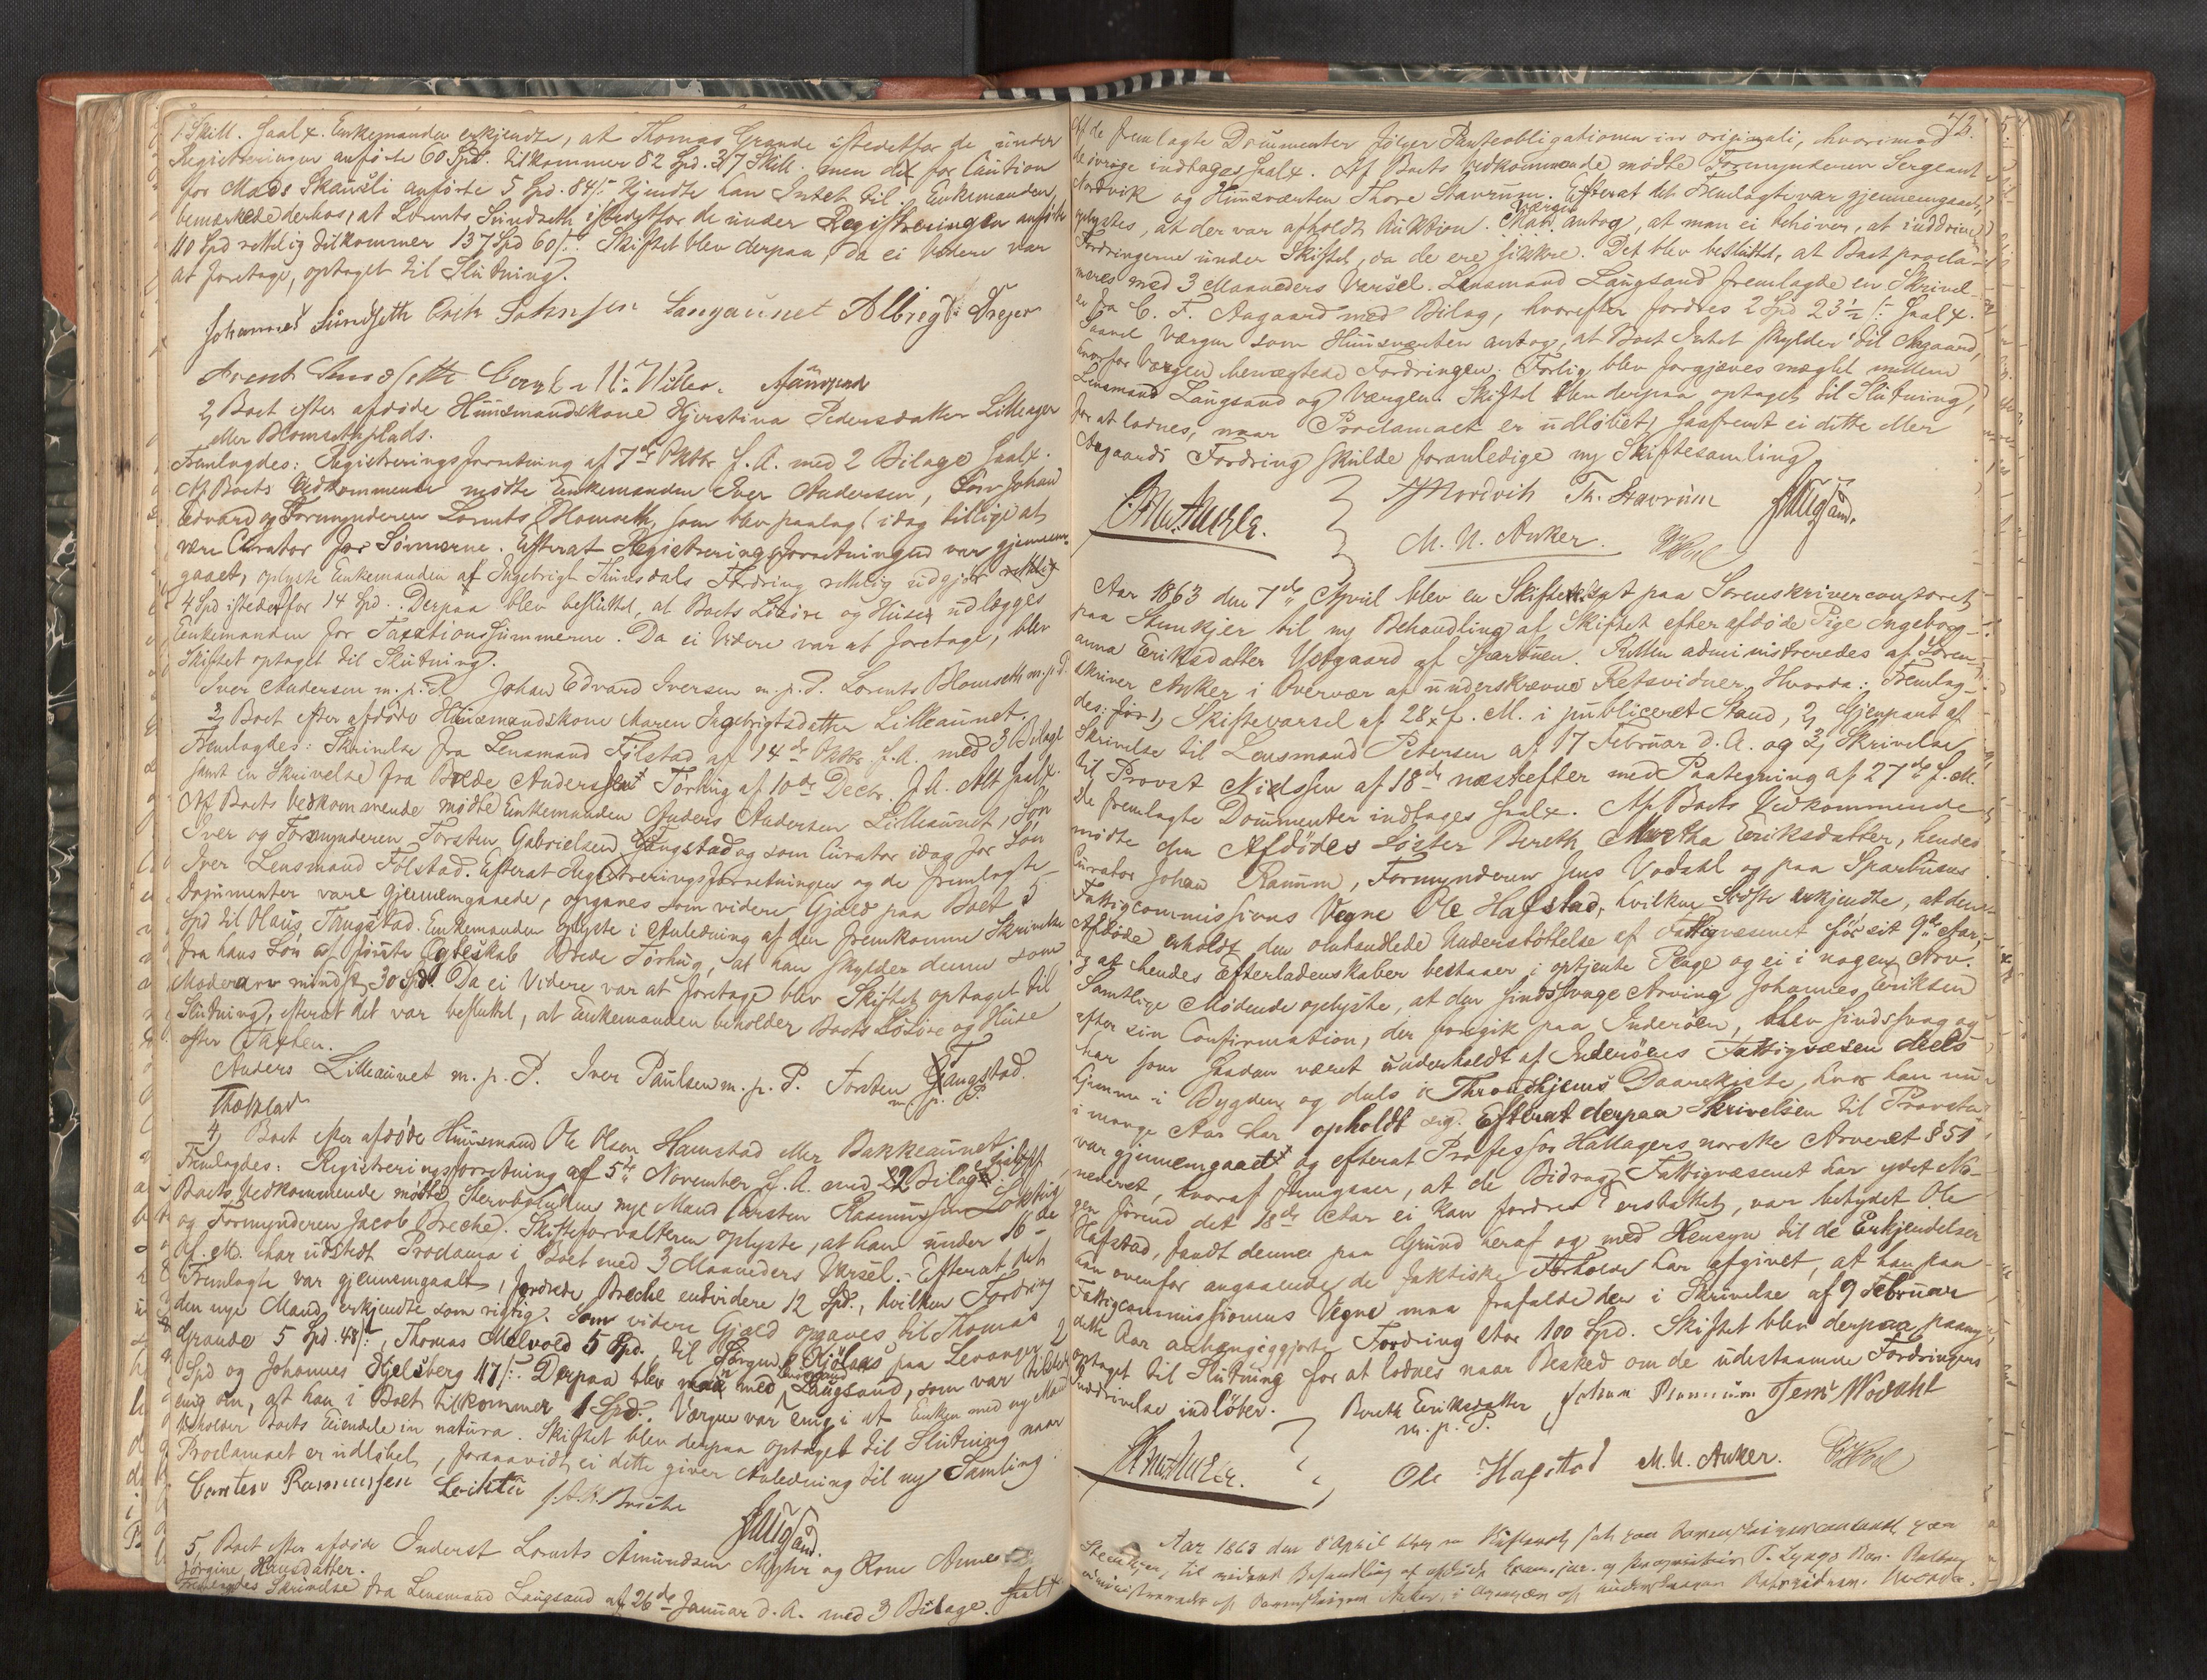 1 Skill. Saalx. Enkemanden erkjendte, at Thomas Grande istedetfor de under
Registreringen anførte 60 Spd. tilkommer 82 Spd. 37 Skill. men det for Caution
for Mads Skausli anførte 5 Spd. 84 /: kjendte han Intet til. Enkemanden
bemærkede derhos, at Lorents Sundseth istedetfor de under Registreringen anførte
110 Spd rettelig tilkommer 137 Spd 60 /: Skiftet blev derpaa, da ei videre var
at foretage, optaget til Slutning.
Johannes Sundseth
Arent Sundseth
2, Boet efter afdøde Huusmandskone Kjerstina Pedersdatter Lilleager
eller Blomsethplads.
Fremlagdes: Registreringsforretning af 7de Oktbr f. A. med 2 Bilage Saalx.
Af Boets Vedkommende mødte Enkemanden Iver Andersen, Søn Johan
Edvard og Formynderen Lorents Blomseth, som blev paalagt idag tillige at
være Curator for Sønnerne. Efterat Registreringsforretningen var gjennem-
gaaet, oplyste Enkemanden at Ingebrigt Fordring rettelig udgjør
4 Spd istedetfor 14 Spd. Derpaa blev besluttet, at Boets Løsøre og Huse udlægges
Enkemanden for Taxationssummerne. Da ei Videre var at foretage, blev
Skiftet optaget til Slutning.
Iver Andersen m. p. P. Johan Edvard Iversen m. p. P. Lorents Blomseth m. p. P.
3, Boet efter afdøde Huusmandskone Maren Ingebrigtsdatter Lilleaunet.
Fremlagdes: Skrivelse fra Lensmand Følstad af 14de Oktbr. f. A. med 3 Bilage
samt en Skrivelse fra Brede Andersen Førhug af 10de Decbr. f. A. Alt Saalx.
Af Boets Vedkommende mødte Enkemanden Anders Andersen Lilleaunet, Søn
Iver og Formynderen Torsten Gabrielsen Tangstad og som Curator idag for Søn
Iver Lensmand Følstad. Efterat Registreringsforretningen og de fremlagte
Dokumenter vare gjennemgaaede, opgaves som videre Gjæld paa Boet 5
Spd til Olaus Tangstad. Enkemanden oplyste i Anledning af den fremkomne Skrivelse
fra hans Søn af første Ægteskab Brede Førhug, at han skylder denne som
Mødrearv mindst 30 Spd. Da ei Videre var at foretage blev Skiftet optaget til
Slutning, efterat det var besluttet, at Enkemanden beholder Boets Løsøre og Huse
efter Taxten.
Anders Lilleaunet m. p. P. Iver Paulsen m. p. P. Torsten Tangstad.
m. p. P.
4, Boet efter afdøde Huusmand Ole Olsen Hamstad eller Bakkeaunet.
Fremlagdes: Registreringsforretning af 5te November f. A. med 2 Bilage Saalx. Af
Boets Vedkommende mødte Stervboenkens nye Mand Carsten Rasmussen
og Formynderen Jacob Breche. Skifteforvalteren oplyste, at han under 16de
f. M. har udstedt Proclama i Boet med 3 Maaneders Varsel. Efterat det
Fremlagte var gjennemgaaet, fordrede Breche endvidere 12 Spd., hvilken Fordring
den nye Mand erkjendte som rigtig. Som videre Gjæld opgaves til Thomas
Grande 5 Spd. 48 /:, Thomas Melvold 5 Spd. til Jørgen Kjølaas paa Levanger 2
Spd og Johannes Hjelsberg 117 /: Derpaa blev man med Lensmand Laugsand, som var tilstede
enig om, at han i Boet tilkommer 1 Spd. Værgen var enig i at Enken med ny Mand
beholder Boets Eiendele in natura. Skiftet blev derpaa optaget til Slutning naar
Proclamaet er udløbet, forsaavidt ei dette giver Anledning til ny Samling.
Carsten Rasmussen J. A. K. Breche
Laugsand.
5, Boet efter afdøde Inderst Lorents Amundsen Myhr og Kone Anne
Jørgine Hansdatter.
Fremlagdes Skrivelse fra Lensmand Laugsand af 26de Januar d. A. med 3 Bilage. Saalx
72.
Af de fremlagte Documenter følger Panteobligationen in originali, hvorimod
de øvrige indtages Saalx. Af Boets Vedkommende mødte Formynderen Sergeant
Nordvik og Huusværten Thore Stavrum. Efterat det Fremlagte var gjennemgaaet,
oplystes, at der var afholdt Auktion. Værgen antog, at man ei behøver, at inddrive
Fordringerne under Skiftet, da de ere sikkre. Det blev besluttet, at Boet procla-
meres med 3 Maaneders Varsel. Lensmand Laugsand fremlagde en Skrivel-
se fra C. F. Aagaard med Bilag, hvorefter fordres 2 Spd 23½ /: Saalx.
Saavel Værgen som Huusværten antog, at Boet Intet skylder til Aagaard,
hvorfor Værgen benægtede Fordringen. Forlig blev forgjæves mæglet mellem
Lensmand Laugsand og Værgen. Skiftet blev derpaa optaget til Slutning,
for at lodnes, naar Proclamaet er udløbet, saafremt ei dette eller
Aagaards Fordring skulde foranledige ny Skiftesamling.
Nordvik Th. Stavrum Laugsand.
M. N. Anker.
Aar 1863 den 7de April blev en Skifteret sat paa Sorenskrivercontoret
paa Stenkjer til ny Behandling af Skiftet efter afdøde Pige Ingeborg-
anna Eriksdatter Vestgaard af Sparbuen. Retten administreredes af Soren-
skriver Anker i Overvær af underskrevne Retsvidner. Hvorda: Fremlag-
des: 1, Skiftevarsel af 28 f. M. i publiceret Stand, 2, Gjenpart af
Skrivelse til Lensmand Petersen af 17 Februar d. A. og 3, Skrivelse
til Provst Nielssen af 18de næstefter med Paategning af 27de f. M.
De fremlagte Doumenter indtages Saalx. Af Boets Vedkommende
mødte den Afdødes Søster Bereth Martha Eriksdatter, hendes
Curator Johan Ramum, Formynderen Jens Vodahl og paa Sparbuens
Fattigcommissions Vegne Ole Hafstad, hvilken Sidste erkjendte, at den
Afdøde erholdt den omhandlede Understøttelse af Fattigvæsenet før sit 9de Aar,
og at hendes Efterladenskaber bestaaer i optjente Penge og ei i nogen Arv.
Samtlige Mødende oplyste, at den sindssvage Arving Johannes Eriksen
efter sin Confirmation, der foregik paa Inderøen, blev sindssvag og
har som saadan været underholdt af Inderøens Fattigvæsen deels
hjemme i Bygden og dels i Throndhjems Daarekiste, hvor han nu
i mange Aar har opholdt sig. Efterat derpaa Skrivelsen til Provsten
var gjennemgaaet og efterat Professor Hallagers norske Arveret § 51
nederst, hvoraf fremgaaer, at de Bidrag Fattigvæsenet har ydet No-
gen førend det 18de Aar ei kan fordres erstattet, var betydet Ole
Hafstad, fandt denne paa Grund heraf og med Hensyn til de Erkjendelser
han ovenfor angaaende de faktiske Forholde har afgivet, at han paa
Fattigcommissionens Vegne maa frafalde den i Skrivelse af 9 Februar
dette Aar anhængiggjorte Fordring stor 100 Spd. Skiftet blev derpaa paany
optaget til Slutning for at lodnes naar Besked om de udestaaende Fordringers
Inddrivelse indløber.
Bereth Eriksdatter Johan Ramum Jens Wodahl
m. p. P.
Ole Hafstad M. N. Anker.
Aar 1863 den 8 April blev en Skifteret sat paa Sorenskrivercontoret paa
Stenkjer, til videre Behandling af afdøde Exam. jur. og
administreredes af Sorenskriver Anker, i Overvær af underskrevne Retsvidner. Hvorda.